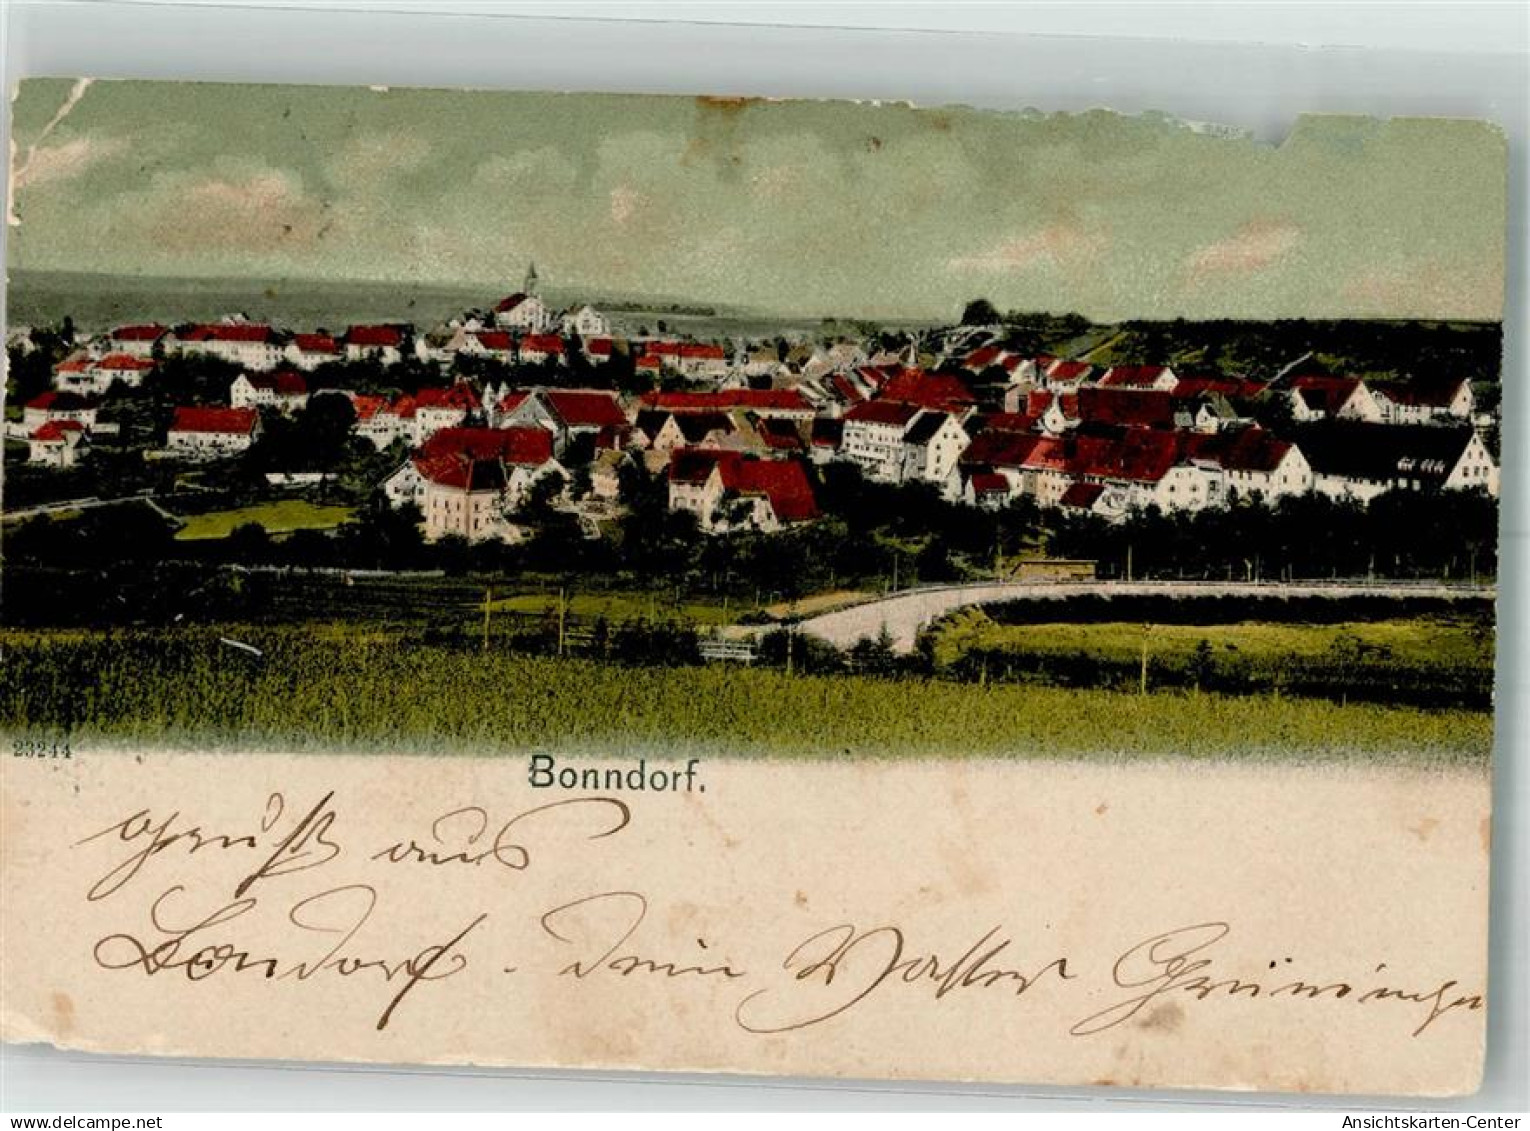 23244
Bonndorf.
Gruß aus
Bondorf. Dein Walter Grüninger
www.delcampe.net
Ansichtskarten-Center